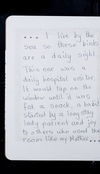 ... I live by the
sea so these birds
are a daily sight
This one was a
daily hospital visitor,
it would tap on the
window until it was
fed a snack, a habit
started by a long stay
lady patient and joy
to others who used the
room like my Mother...